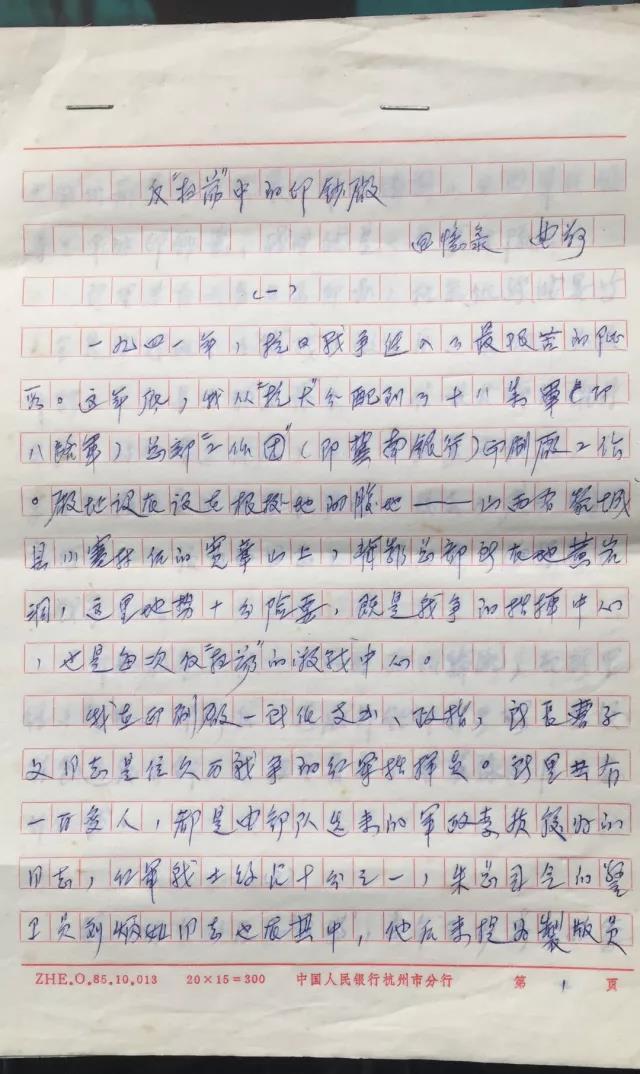 反“扫荡”中的印钞厂
回忆录
(一)
一九四一年,抗日战争进入了最艰苦的阶
段。这年底,我从“抗大”分配到了十八集团军(即
八路军)总部“工作团”(即冀南银行)印刷厂工作
。厂址设在设在根据地的腹地——山西省黎城
县小寨村伍的宽华山上,挨部总部所在地黄岩
洞,这里地势十分险要,既是战争的指挥中心
,也是每次反“扫荡”的激战中心。
我在印刷厂一所任支书、政指,所长曹子
文同志是位久历战争的红军指挥员。所里共有
一百多人,都是由部队选来的军政素质较好的
同志,红军战士约占十分之一,朱总司令的警
卫员刘炳灿同志也在其中,他后来提为製版员
ZHE.O.85.10.013 20×15=300 中国人民银行杭州市分行 第 1 页